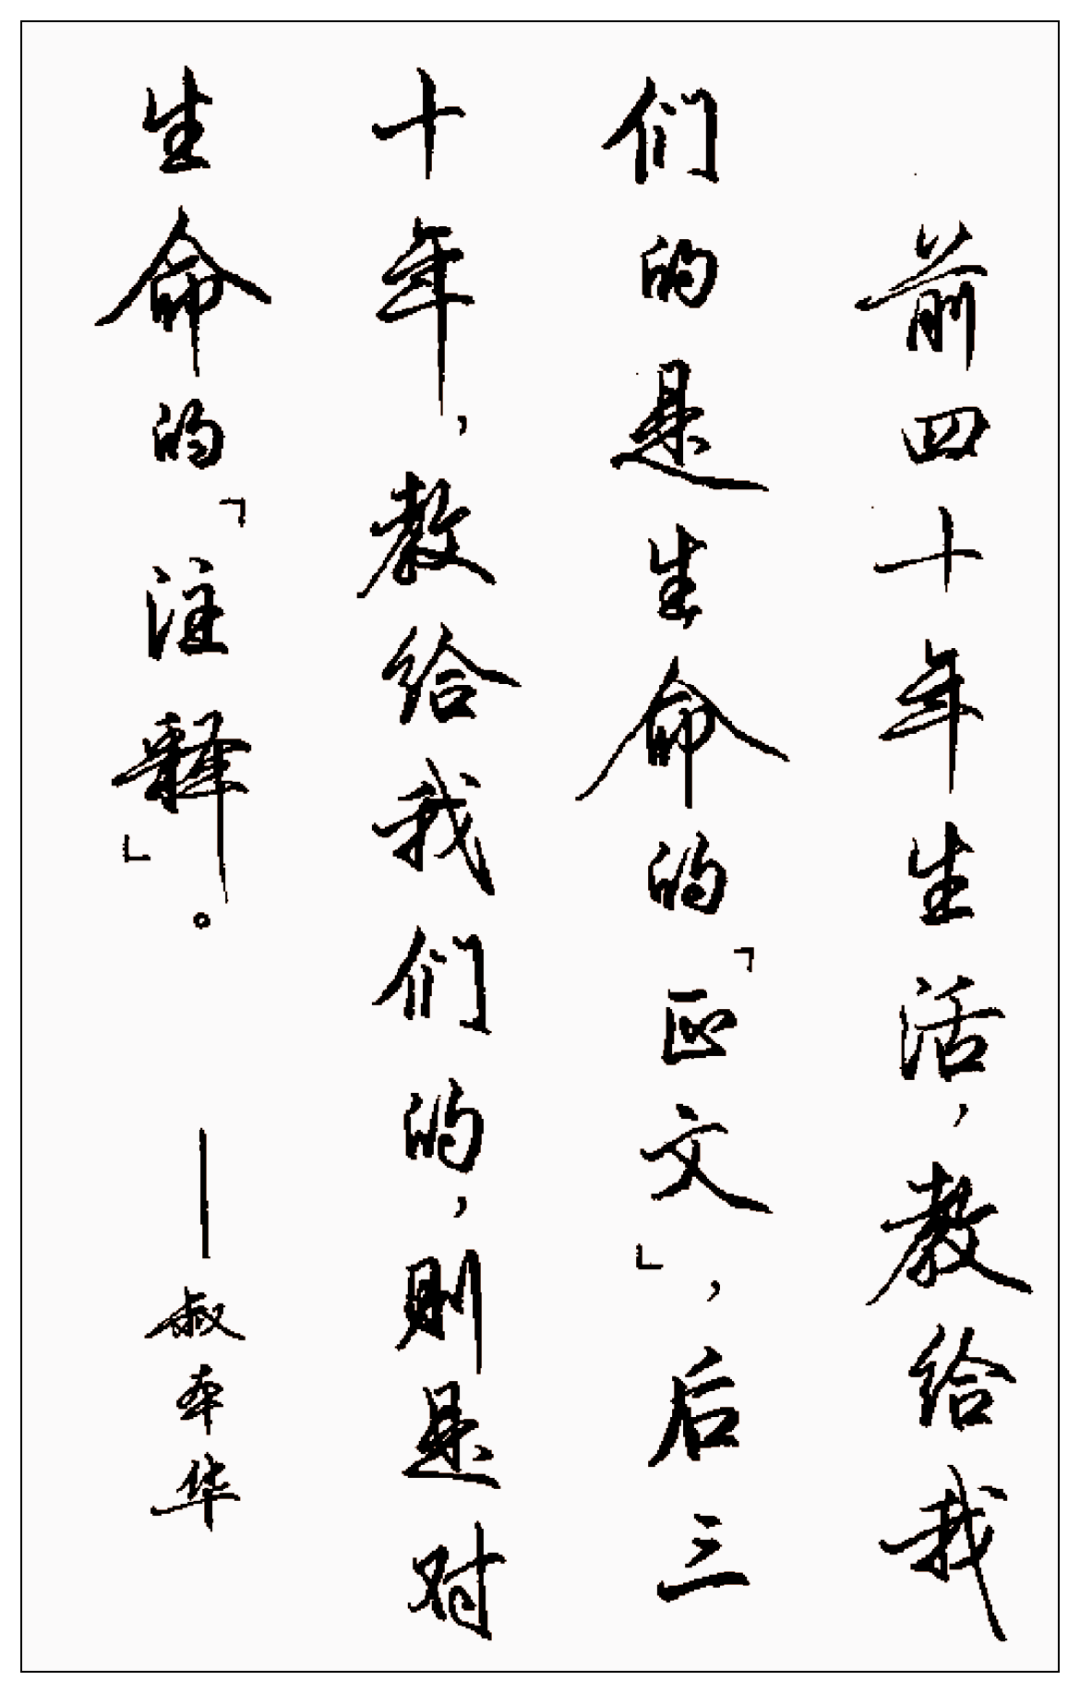 前四十年生活，教给我
们的是生命的「正文」，后三
十年，教给我们的，则是对
生命的「注释」。——叔本华